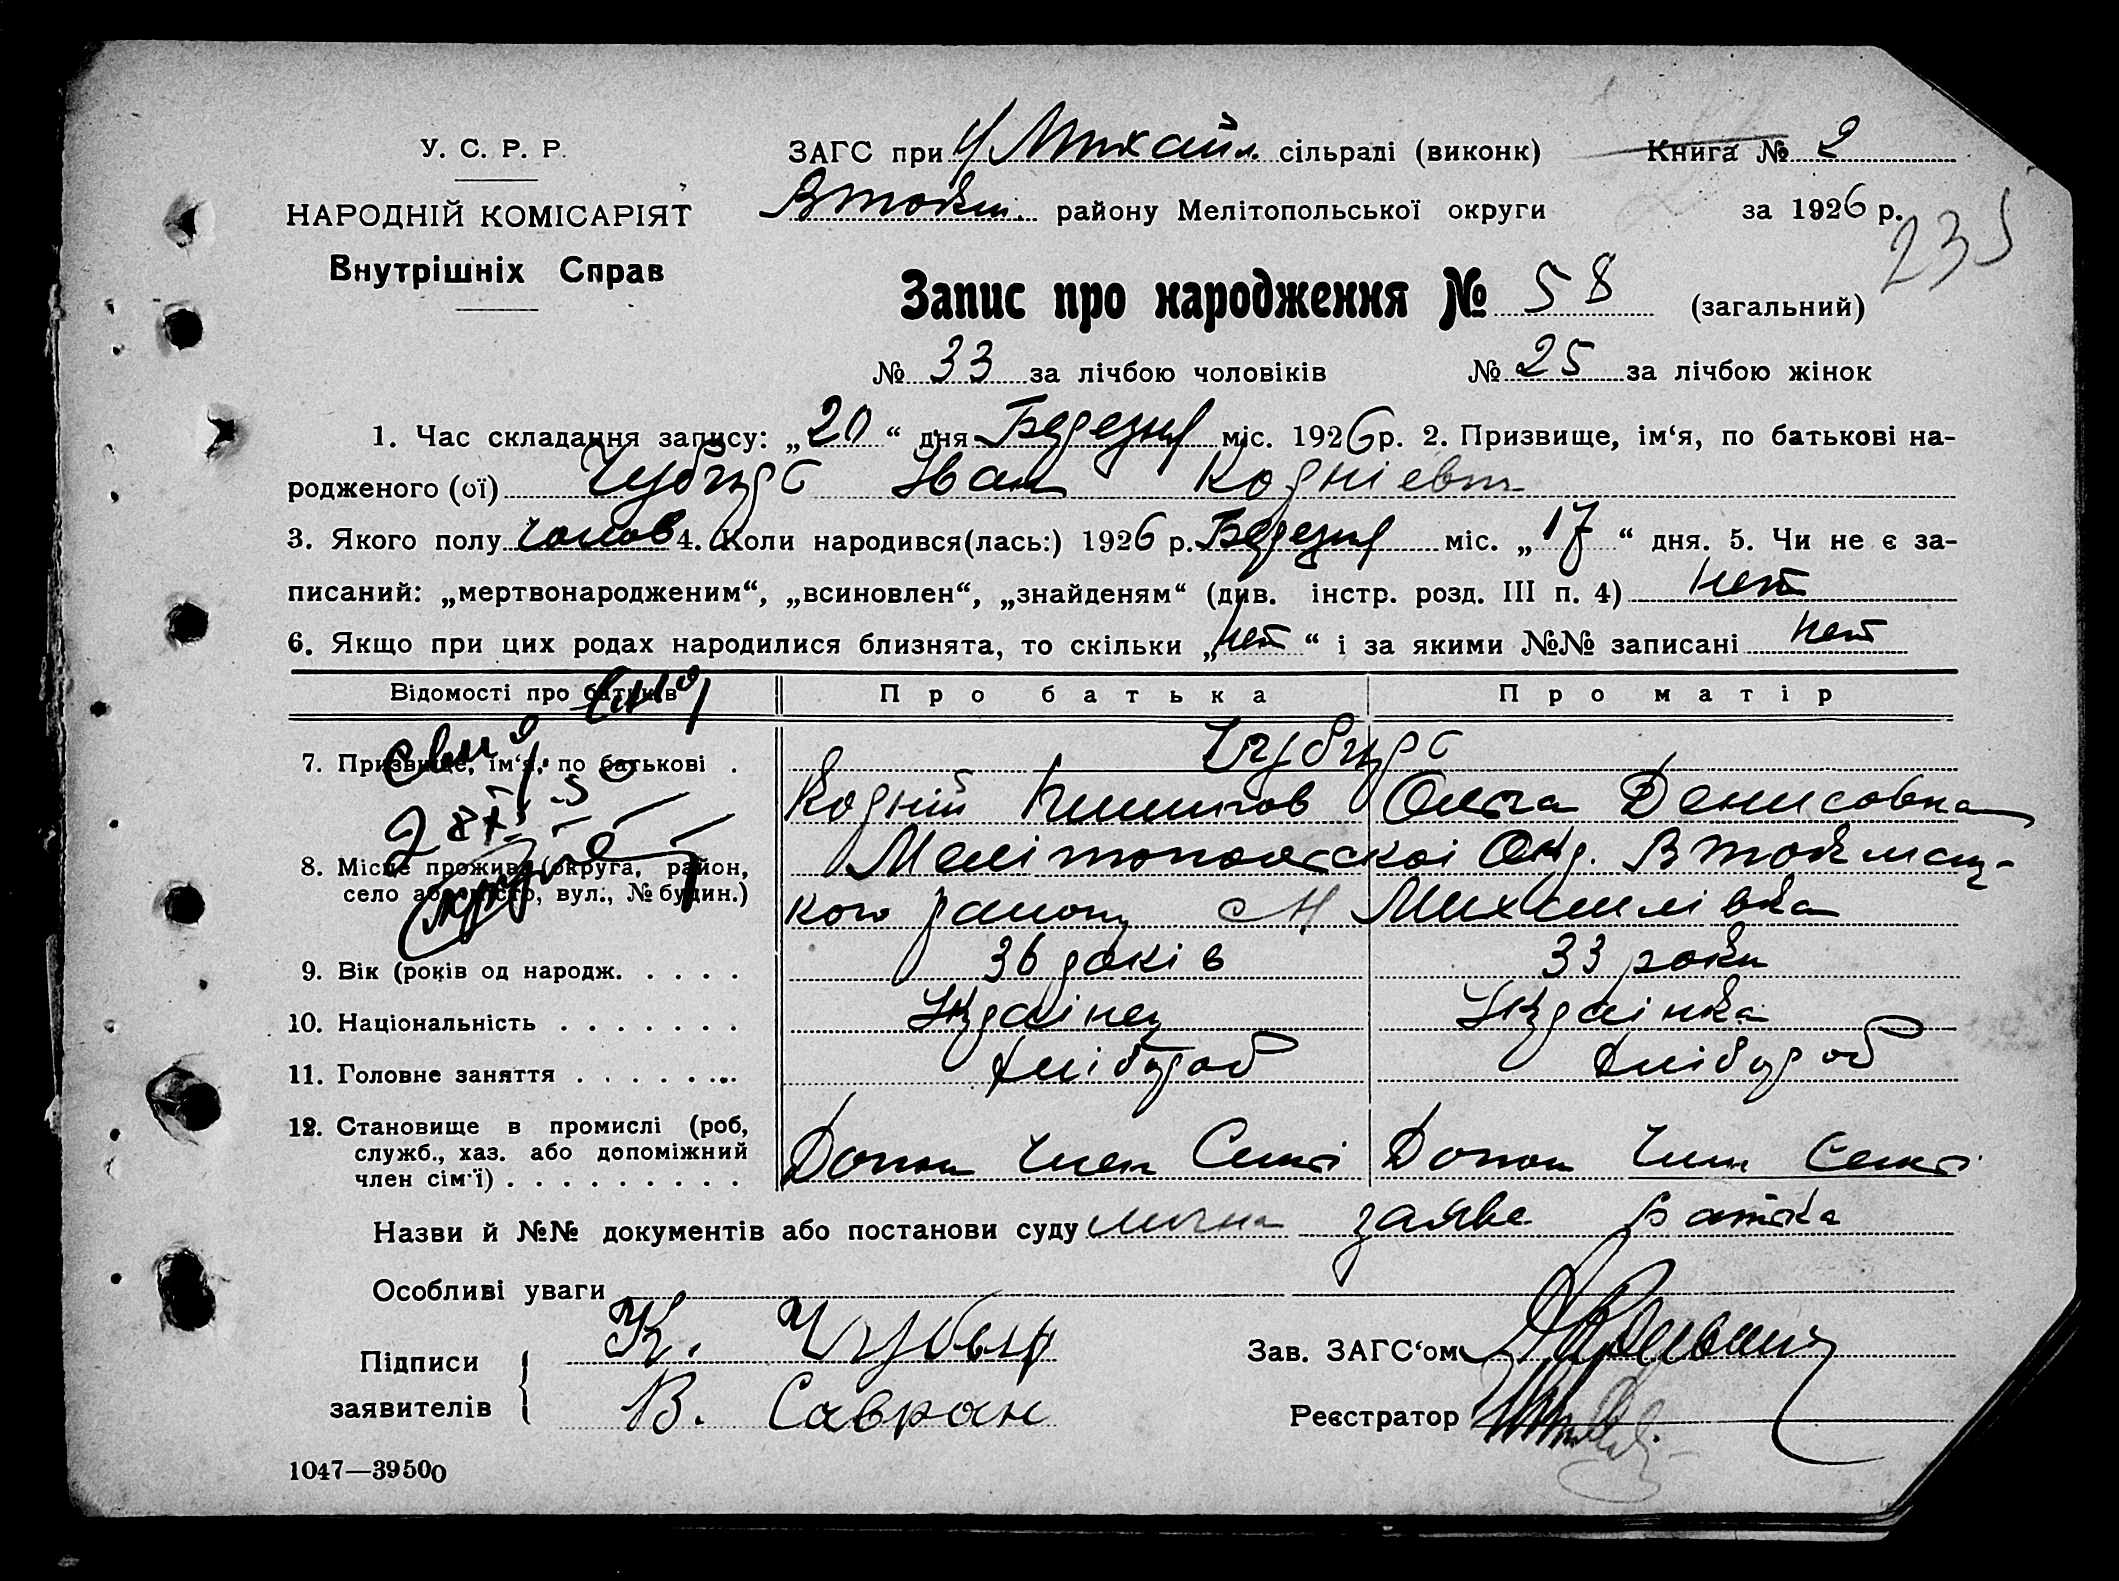 У. С. Р. Р.
НАРОДНІЙ КОМІСАРІЯТ
Внутрішніх Справ
ЗАГС при Михайл. сільраді (виконк)
Книга № 2
Втокм. району Мелітопольської округи
за 1926 р.
235
Запис про народження № 58 (загальний)
№ 33 за лічбою чоловіків № 25 за лічбою жінок
1. Час складання запису: „20“ дня Березня міс. 1926 р. 2. Призвище, ім‘я, по батькові на-
родженого (ої) Чубирь Іван
3. Якого полу чолов 4. Коли народився(лась:) 1926 р. Березня міс. „17“ дня. 5. Чи не є за-
писаний: „мертвонародженим“, „всиновлен“, „знайденям“ (див. інстр. розд. III п. 4) нет
6. Якщо при цих родах народилися близнята, то скільки „нет“ і за якими №№ записані нет
Відомості про батьків Про батька Про матір
7. Призвище, ім‘я, по батькові . Чубирь
Ольга Денисовна
8. Місце прожив. (округа, район,
село або місто, вул., № будин.)
Мелітопольскоі Окр. Втокмац-
кого району Михайлівка
9. Вік (років од народж. . . . . 36 років 33 роки
10. Національність . . . . . . . Українец Українка
11. Головне заняття . . . . . . . Хлібороб Хлібороб
12. Становище в промислі (роб,
служб., хаз. або допоміжний
член сім‘ї) . . . . . . . . .
Допом Член Семьі Допом Член Семьі
Назви й №№ документів або постанови суду лична заява батька
Особливі уваги
Підписи
заявителів
К. Чубырь
В. Савран
Зав. ЗАГС‘ом
Реєстратор
1047—39500